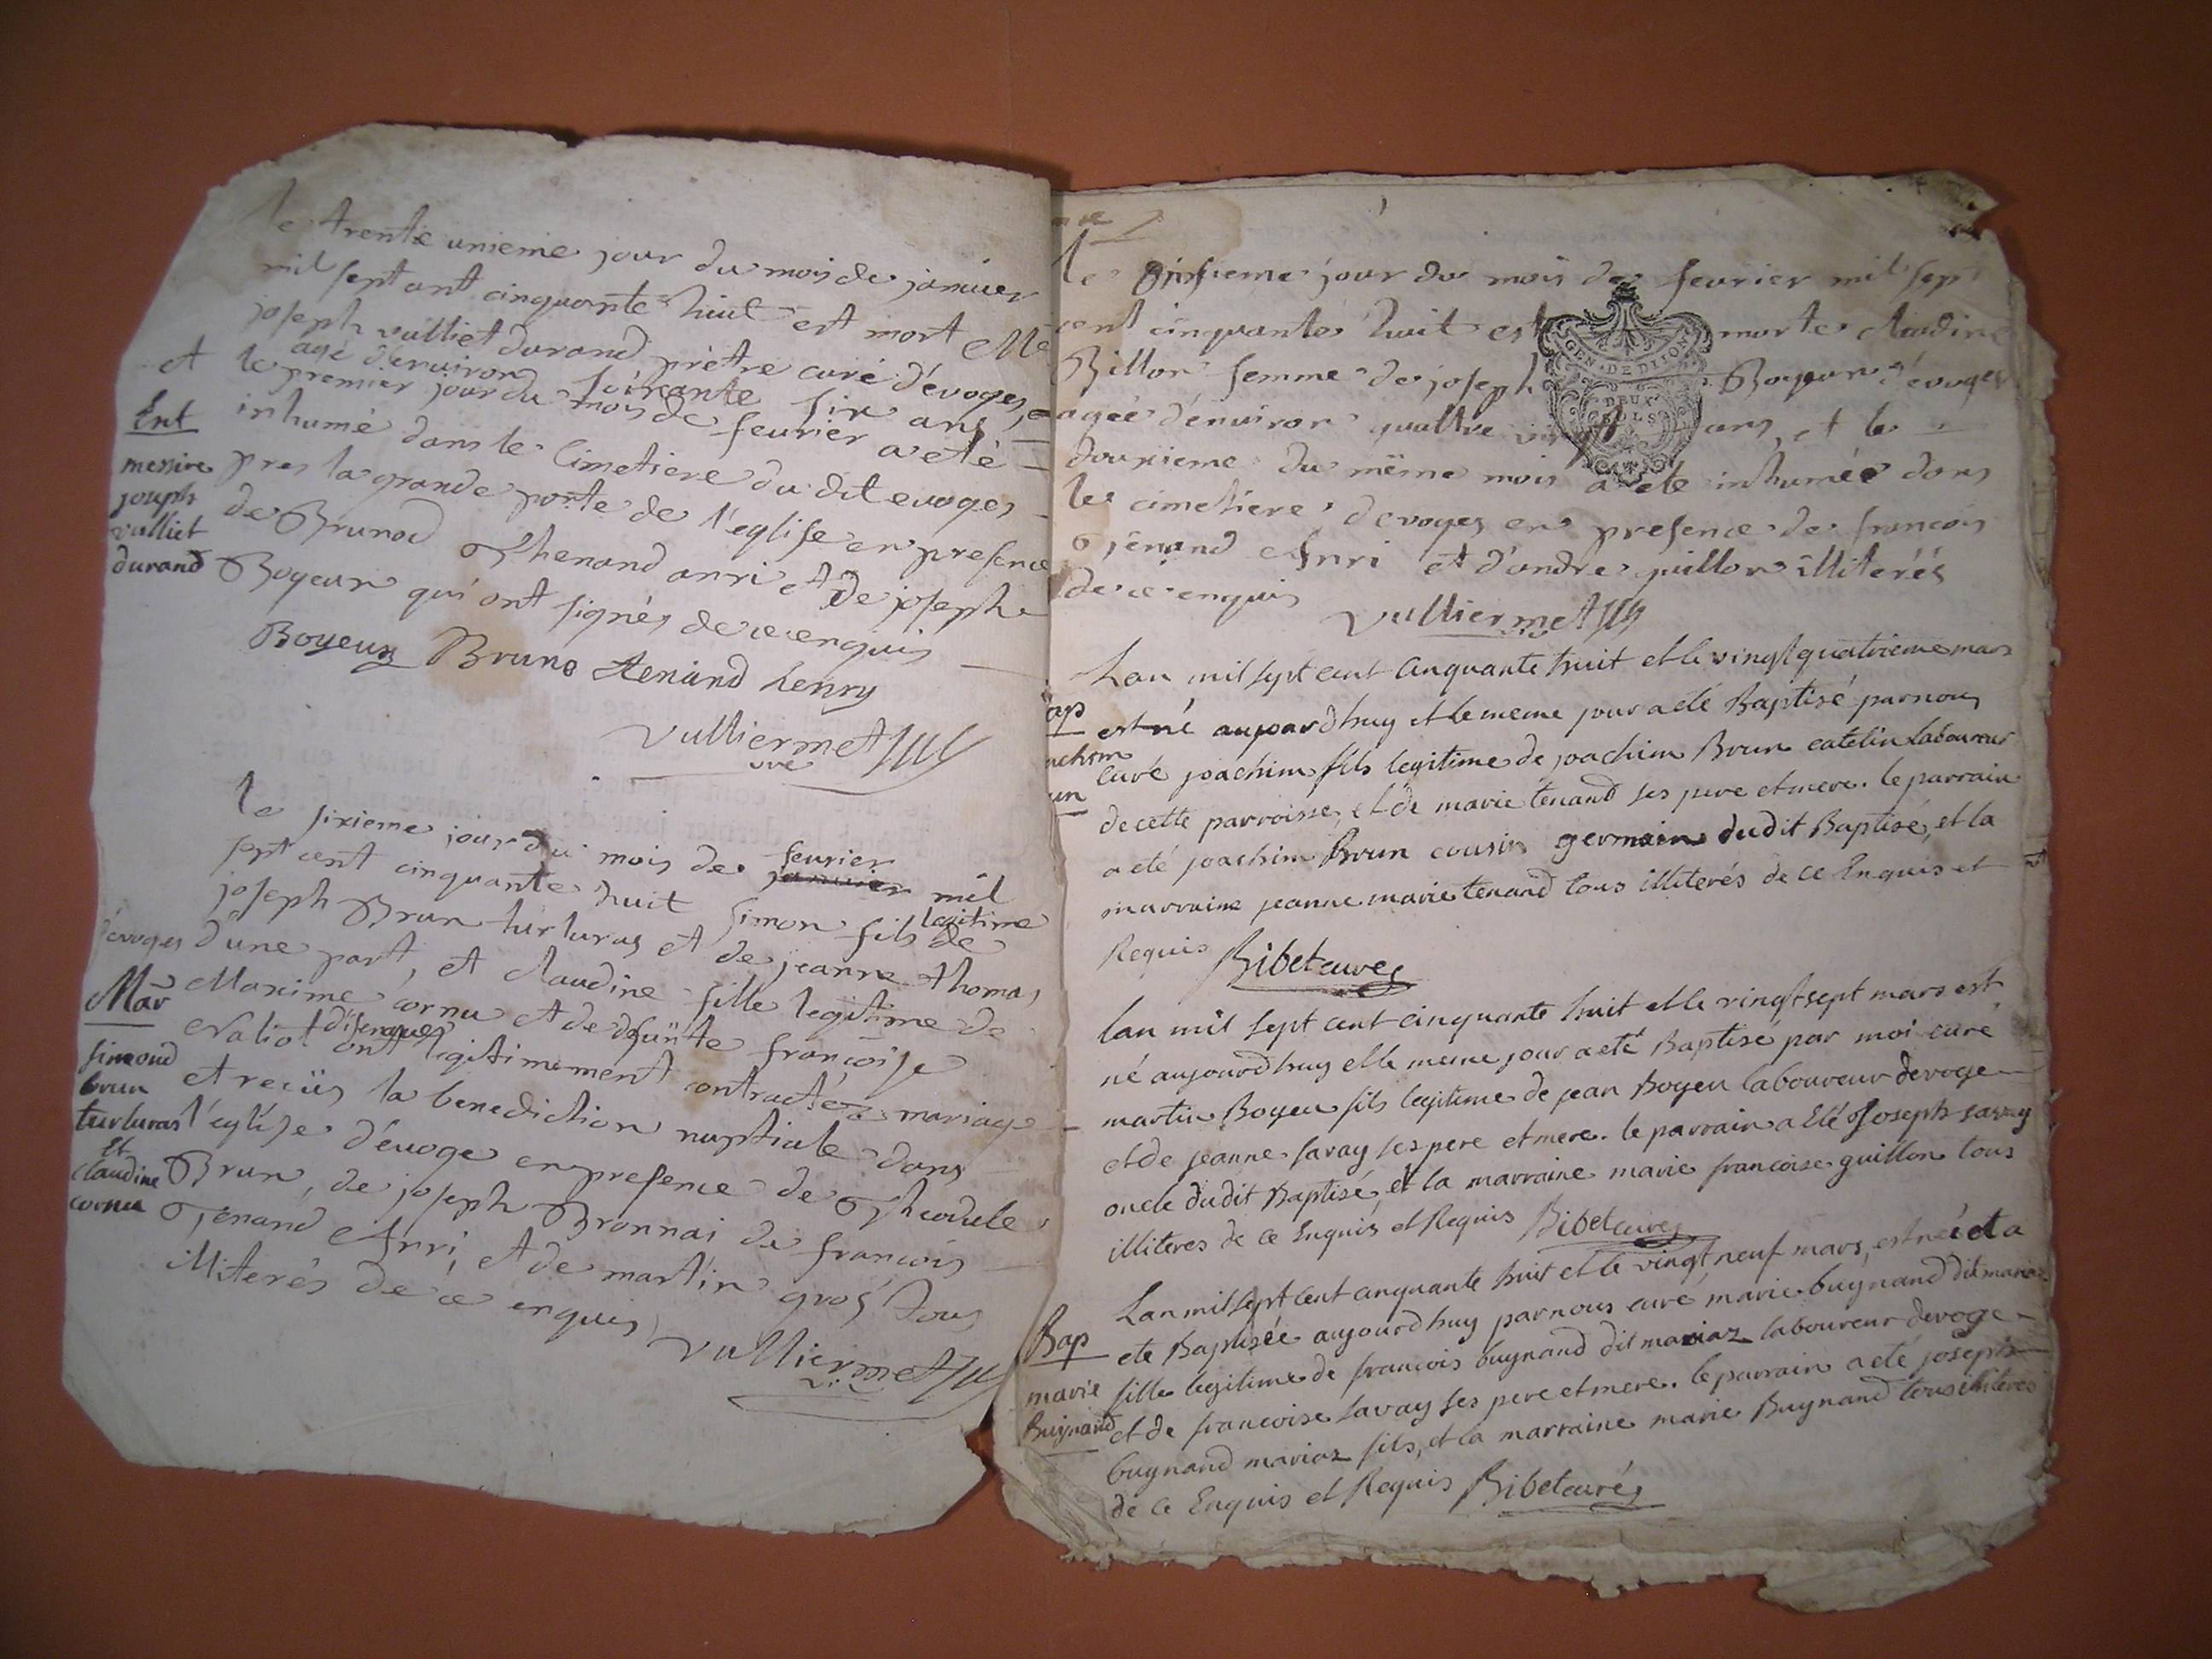 le trente unieme jour du mois de janvier
mil sept cent cinquante huit est mort Me
joseph vulliet durand prètre curé d'évoges,
agé d'environ soixante six ans
et le premier jour du mois de feurier a eté
inhumé dans le Cimetiere du dit evoges
pres la grande porte de l'eglise en presence
de Brunod Thenand anri et de joseph
Boyeux qui ont signés de ce enquis
Ent
messire
joseph
vulliet
durand
Boyeux Bruno tenand henry
vulliermet
le sixieme jour du mois de feurier mil
sept cent cinquante huit simon fils legitime de
joseph Brun turluras et de jeanne thomas
d'evoges d'une part, et claudine fille legitime de
Maxime cornu et de defünte francoise
ont legitimement contracté mariage
et reciis la benediction nuptiale dans
l'église d'évoge en presence de Theodule
Brun, de joseph Bronnai de francois
Tenand Anri, et de martin gros tous
illiterés de ce enquis
vulliermet
Mar
simond
brun
turluras
Et
claudine
cornu
le jour du mois de feurier mil sept
cent cinquante huit est morte claudine
Billon femme de joseph Boyeux d'évoges
agée d'énuiron quattre vingt ans, et le
douxieme du même mois a eté inhumée dans
le cimetière d'evoges en presence de francois
Tenand Anri et d'andre guillon illiterés
de ce enquis
vulliermet
GEN · DE DIJON
DEUX
SOLS
Lan mil sept cent Cinquante huit et le vingt quatrieme mars
est né aujourdhuy et le meme jour a eté Baptisé par nous
curé joachim fils legitime de joachim Brun catelin laboureur
de cette parroisse, et de marie tenand ses pere et mere. le parrain
a eté joachim Brun cousin germain dudit Baptisé, et la
marraine jeanne marie tenand tous illiterés de ce Enquis et
Requis Ribet curé
lan mil sept cent cinquante huit et le vingt sept mars est
né aujourdhuy et le meme jour a eté Baptisé par moi curé
martin Boyeu fils legitime de jean Boyeu laboureur devoge
et de jeanne savay ses pere et mere. le parrain a Eté Joseph savay
oncle dudit Baptisé, et la marraine marie francoise guillon tous
illiteres de ce Enquis et Requis Ribet curé
Lan mil sept cent cinquante huit et le vingt neuf mars, est née et a
eté Baptisée aujourdhuy par nous curé marie buynand dit mariaz
fille legitime de francois buynand dit mariaz laboureur devoge
et de francoise savay ses pere et mere. le parrain a eté joseph
buynand mariaz fils, et la marraine marie Buynand tous illiteres
de ce Enquis et Requis Ribet curé
Bap
marie
Buynand